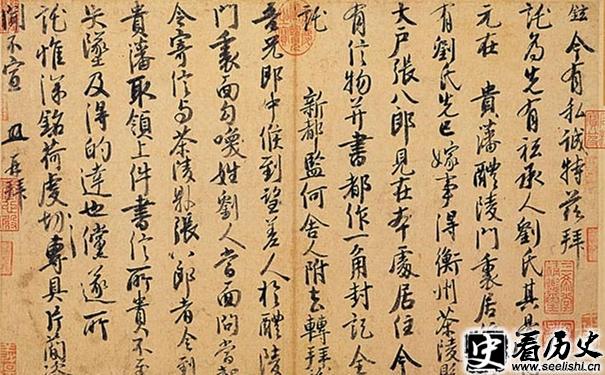 鉉今有私誠特茲拜
託為先有祗承人劉氏其
元在 貴藩醴陵門裏居
有劉氏先已嫁事得衡州茶陵縣
大户張八郎見在本處居住今
有信物并書都作一角封記全
託 新都監何舍人附去轉拜
吾兄郎中候到望差人於醴陵
門裏面勾喚姓劉人當面問當
令寄信与茶陵縣張八郎者令到
貴藩取領上件書信所貴不至
失墜及得的達也儻遂所
託惟深銘荷虔切專具片簡諮
聞不宣 再拜
史看历史
www.seelishi.cn